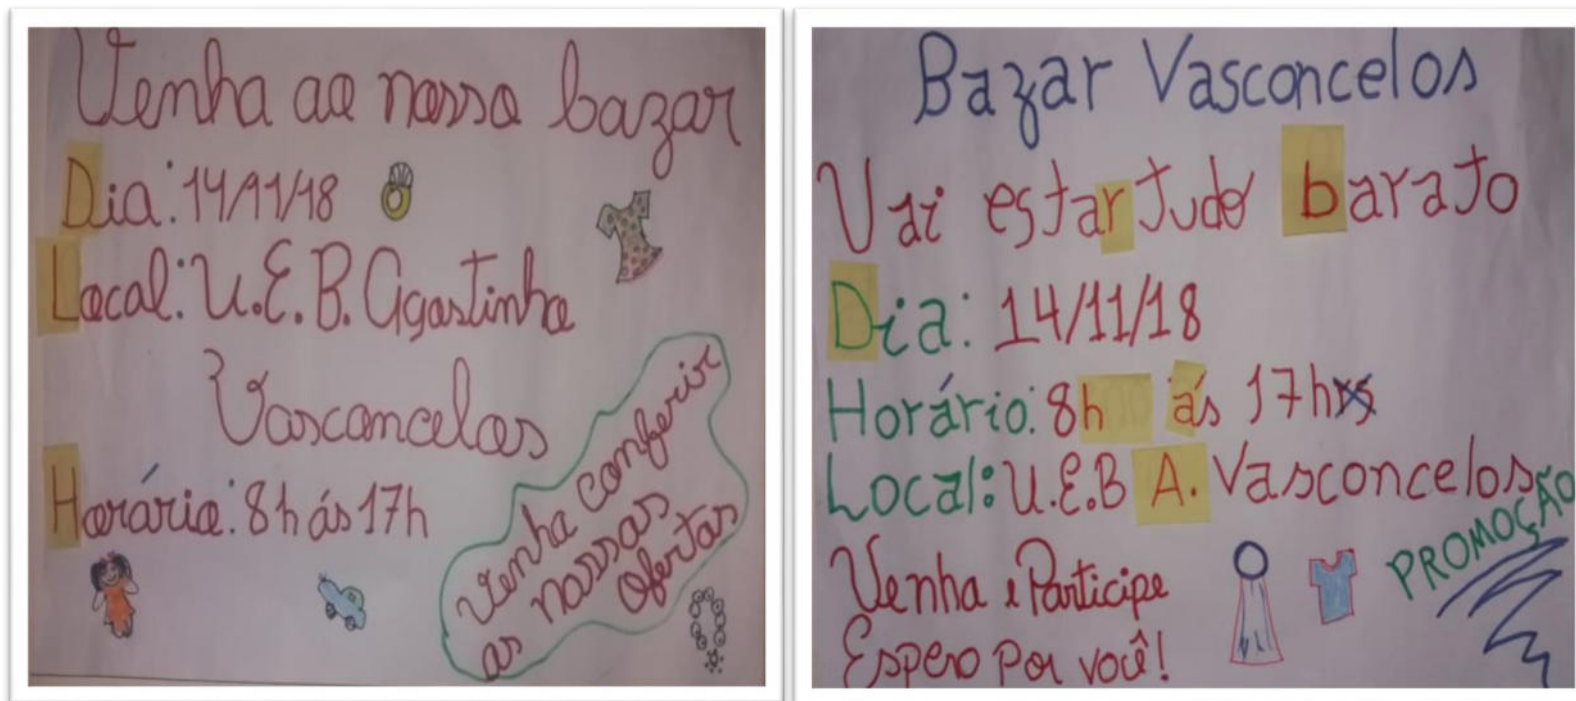 Venha ao nosso bazar
Dia: 14/11/18
Local: U.E.B. Agostinho
Vasconcelos
Horário: 8h ás 17h
Venha conferir
as nossas
ofertas
Bazar Vasconcelos
Vai estar tudo barato
Dia: 14/11/18
Horário: 8h ás 17hrs
Local: U.E.B A. Vasconcelos
PROMOÇÃO
Venha e Participe
Espero por você!